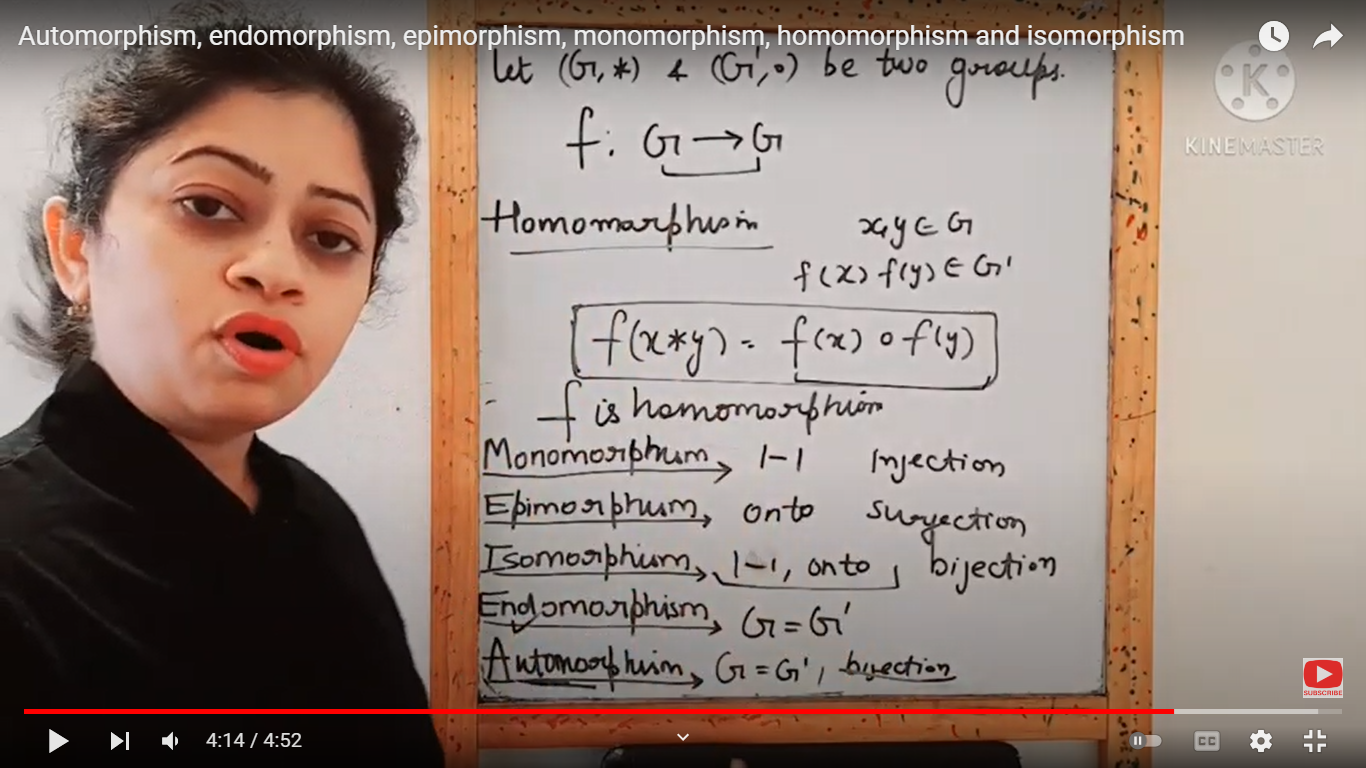 Automorphism, endomorphism, epimorphism, monomorphism, homomorphism and isomorphism
let (G, *) & (G', ∘) be two groups.
f: G → G
Homomorphism x, y ∈ G
f(x) f(y) ∈ G'
f(x*y) = f(x) ∘ f(y)
f is homomorphism
Monomorphism → 1-1 Injection
Epimorphism → onto surjection
Isomorphism → 1-1, onto, bijection
Endomorphism → G = G'
Automorphism → G = G', bijection
K
KINEMASTER
SUBSCRIBE
4:14 / 4:52
CC